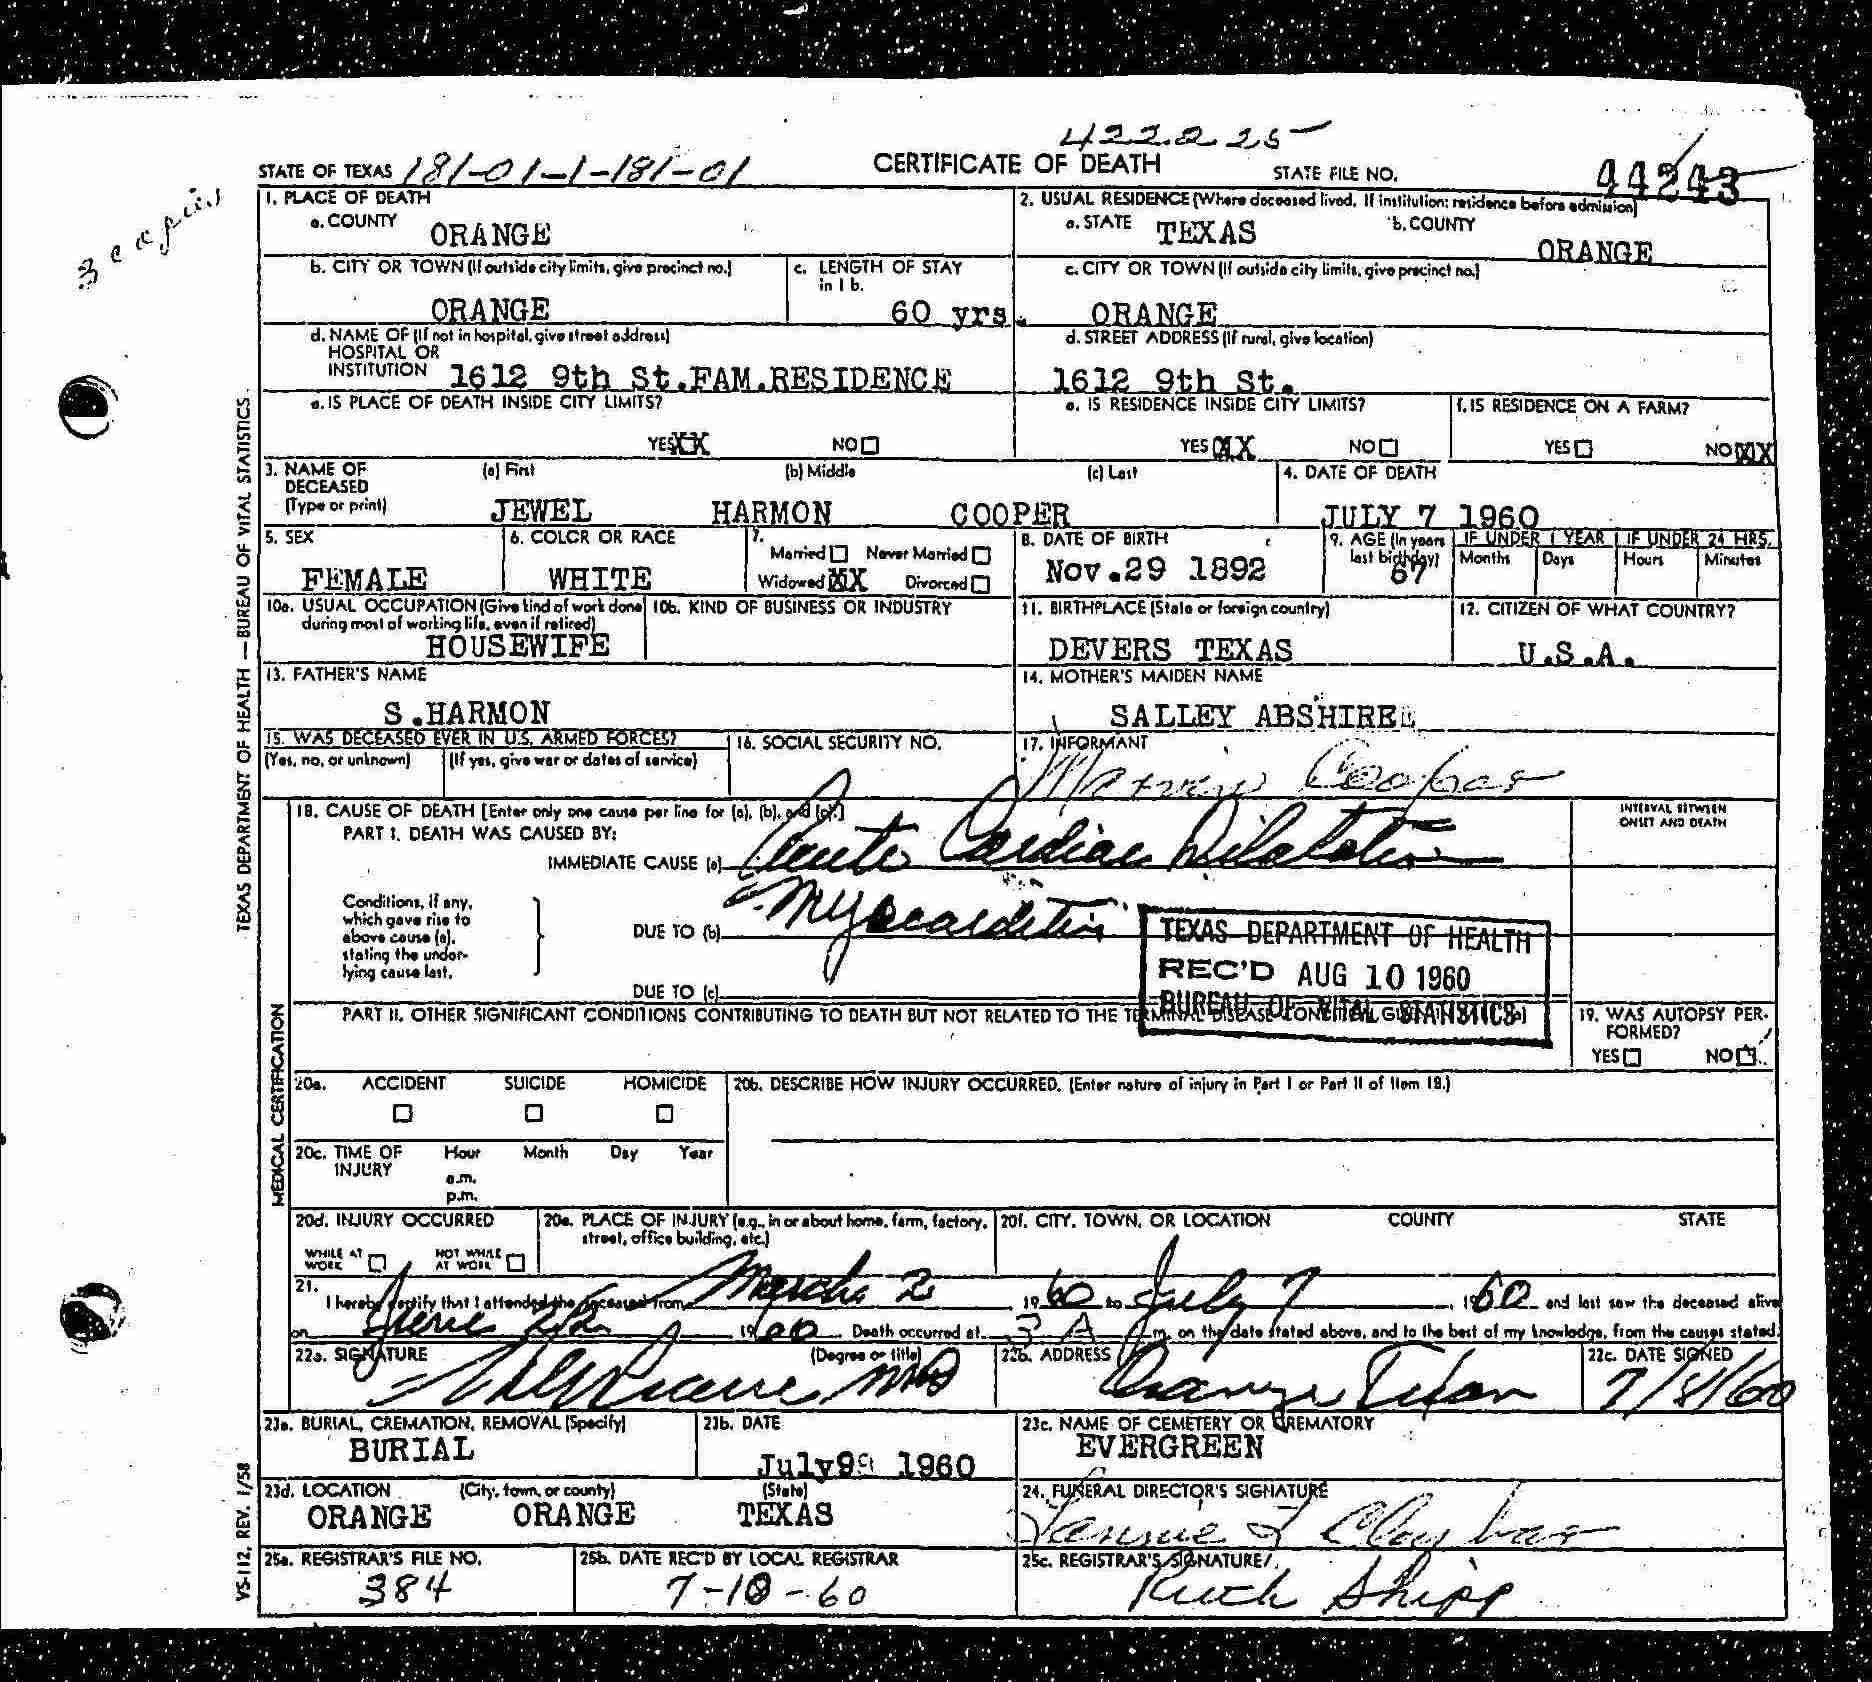 422.2 25
STATE OF TEXAS 181-01-1-181-01 CERTIFICATE OF DEATH STATE FILE NO. 44243
3 copies
1. PLACE OF DEATH
a. COUNTY ORANGE
2. USUAL RESIDENCE (Where deceased lived, If institution: residence before admission)
a. STATE TEXAS b. COUNTY ORANGE
b. CITY OR TOWN (If outside city limits, give precinct no.) ORANGE
c. LENGTH OF STAY in 1 b. 60 yrs.
c. CITY OR TOWN (If outside city limits, give precinct no.) ORANGE
d. NAME OF (If not in hospital, give street address)
HOSPITAL OR
INSTITUTION 1612 9th St.FAM.RESIDENCE
d. STREET ADDRESS (If rural, give location)
1612 9th St.
e. IS PLACE OF DEATH INSIDE CITY LIMITS?
YES XX NO
e. IS RESIDENCE INSIDE CITY LIMITS?
YES XX NO
f. IS RESIDENCE ON A FARM?
YES NO XX
3. NAME OF DECEASED (Type or print)
(a) First (b) Middle (c) Last
JEWEL HARMON COOPER
4. DATE OF DEATH
JULY 7 1960
5. SEX
FEMALE
6. COLOR OR RACE
WHITE
7. Married Never Married
Widowed XX Divorced
8. DATE OF BIRTH
Nov.29 1892
9. AGE (In years last birthday) 67
IF UNDER 1 YEAR IF UNDER 24 HRS.
Months Days Hours Minutes
10a. USUAL OCCUPATION (Give kind of work done during most of working life, even if retired)
HOUSEWIFE
10b. KIND OF BUSINESS OR INDUSTRY
11. BIRTHPLACE (State or foreign country)
DEVERS TEXAS
12. CITIZEN OF WHAT COUNTRY?
U.S.A.
13. FATHER'S NAME
S.HARMON
14. MOTHER'S MAIDEN NAME
SALLEY ABSHIRE
15. WAS DECEASED EVER IN U.S. ARMED FORCES?
(Yes, no, or unknown) (If yes, give war or dates of service)
16. SOCIAL SECURITY NO.
17. INFORMANT
Marvin Cooper
18. CAUSE OF DEATH [Enter only one cause per line for (a), (b), and (c).]
INTERVAL BETWEEN ONSET AND DEATH
PART I. DEATH WAS CAUSED BY:
IMMEDIATE CAUSE (a) Acute Cardiac Dilatation
Conditions, if any, which gave rise to above cause (a), stating the underlying cause last.
DUE TO (b) Myocarditis
DUE TO (c)
TEXAS DEPARTMENT OF HEALTH
REC'D AUG 10 1960
BUREAU OF VITAL STATISTICS
PART II. OTHER SIGNIFICANT CONDITIONS CONTRIBUTING TO DEATH BUT NOT RELATED TO THE TERMINAL DISEASE CONDITION
19. WAS AUTOPSY PERFORMED?
YES NO
20a. ACCIDENT SUICIDE HOMICIDE
20b. DESCRIBE HOW INJURY OCCURRED. (Enter nature of injury in Part I or Part II of Item 18.)
20c. TIME OF INJURY Hour Month Day Year
a.m.
p.m.
20d. INJURY OCCURRED
WHILE AT WORK NOT WHILE AT WORK
20e. PLACE OF INJURY (e.g., in or about home, farm, factory, street, office building, etc.)
20f. CITY, TOWN, OR LOCATION COUNTY STATE
21. I hereby certify that I attended the deceased from March 2 1960 to July 7, 1960 and last saw the deceased alive
on June 1960 Death occurred at 3 A m, on the date stated above, and to the best of my knowledge, from the causes stated.
22a. SIGNATURE (Degree or title)
MD
22b. ADDRESS
Orange Texas
22c. DATE SIGNED
7/8/60
23a. BURIAL, CREMATION, REMOVAL (Specify)
BURIAL
23b. DATE
July 9 1960
23c. NAME OF CEMETERY OR CREMATORY
EVERGREEN
23d. LOCATION (City, town, or county) (State)
ORANGE ORANGE TEXAS
24. FUNERAL DIRECTOR'S SIGNATURE
Fannie L Claybar
25a. REGISTRAR'S FILE NO.
384
25b. DATE REC'D BY LOCAL REGISTRAR
7-10-60
25c. REGISTRAR'S SIGNATURE
Ruth Shipp
TEXAS DEPARTMENT OF HEALTH — BUREAU OF VITAL STATISTICS
MEDICAL CERTIFICATION
VS-112, REV. 1/58